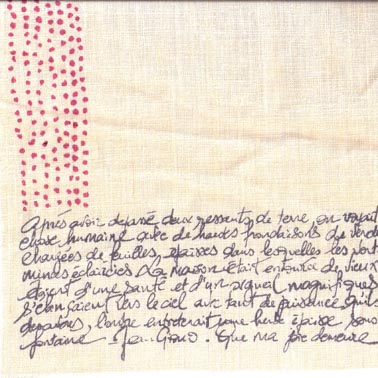 Après avoir dépassé deux ressauts de terre, on voyait
chose humaine avec de hautes frondaisons de verdu
chargées de feuilles épaisses dans lesquelles les port
minces éclaircies. La maison était entourée de vieux
étaient d'une santé et d'un orgueil magnifiques
s'élançaient vers le ciel avec tant de puissance, qu'ils
l'ombre entretenait une herbe épaisse sous
fontaine. Jean Giono. Que ma joie demeure